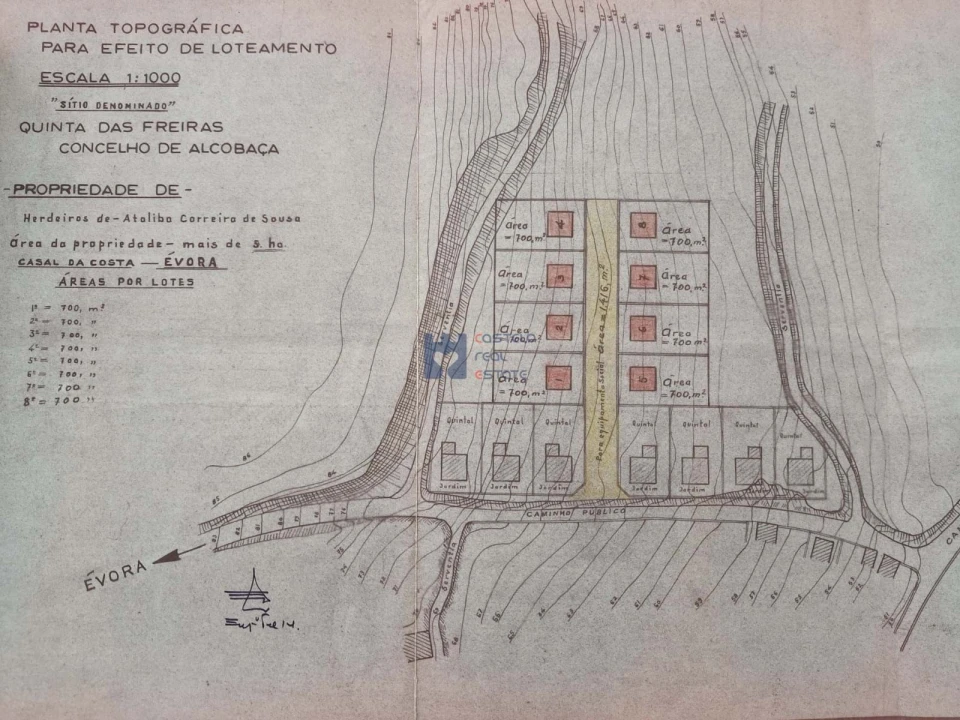 PLANTA TOPOGRÁFICA
PARA EFEITO DE LOTEAMENTO
ESCALA 1:1000
"SÍTIO DENOMINADO"
QUINTA DAS FREIRAS
CONCELHO DE ALCOBAÇA
-PROPRIEDADE DE-
Herdeiros de - Ataliba Correira de Sousa
Área da propriedade - mais de 5. ha.
CASAL DA COSTA — ÉVORA
ÁREAS POR LOTES
1º = 700, m²
2º = 700, "
3º = 700, "
4º = 700, "
5º = 700, "
6º = 700, "
7º = 700 "
8º = 700 "
Área = 700, m² 4
8 Área = 700, m²
Área = 700, m² 3
7 Área = 700, m²
Área 700, m² 2
6 Área = 700, m²
Área = 700, m² 1
5 Área = 700, m²
Para equipamento Social Área = 1.416, m²
Serventia
Serventia
CASTELO
real
ESTATE
Quintal Quintal Quintal Quintal Quintal Quintal Quintal
Jardim Jardim Jardim Jardim Jardim Jardim Jardim
CAMINHO PÚBLICO
Serventia
ÉVORA